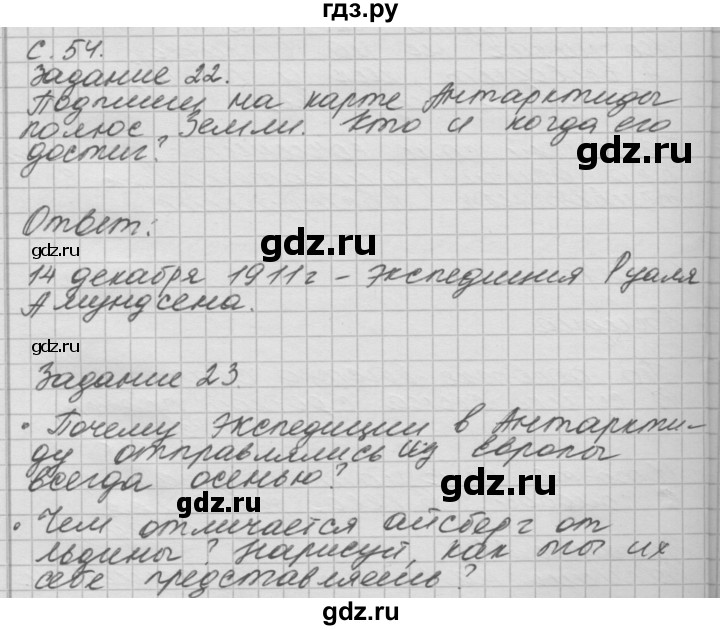 гдз.ру
с. 54.
Задание 22.
Подпиши на карте Антарктиды
полюс Земли. Кто и когда его
достиг?
gdz.ru
Ответ:
gdz.ru
gdz.ru
14 декабря 1911г - экспедиция Руаля
Амундсена.
gdz.ru
Задание 23.
• Почему экспедиции в Антаркти-
ду отправлялись из Европы
всегда осенью?
gdz.ru
gdz.ru
• Чем отличается айсберг от
льдины? Нарисуй, как ты их
себе представляешь?
gdz.ru